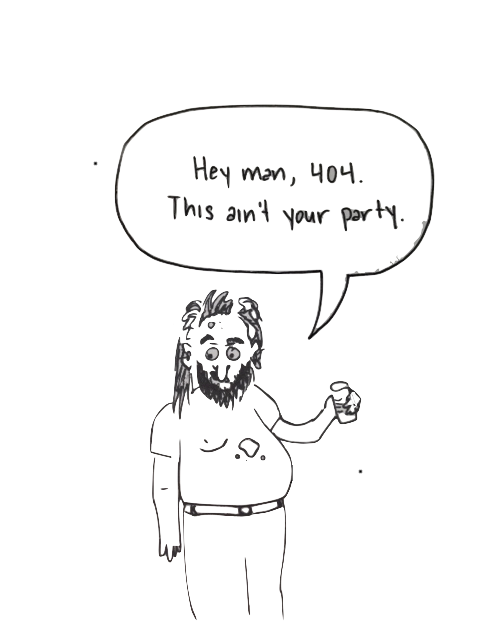 Hey man, 404.
This ain't your party.